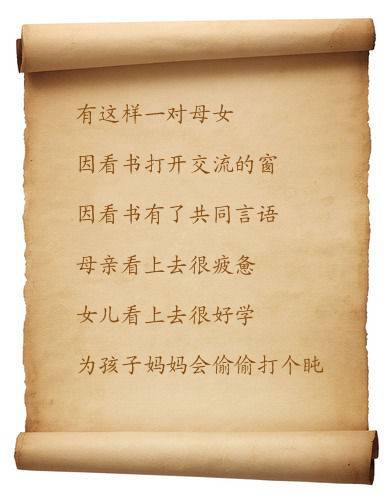 有这样一对母女
因看书打开交流的窗
因看书有了共同言语
母亲看上去很疲惫
女儿看上去很好学
为孩子妈妈会偷偷打个盹